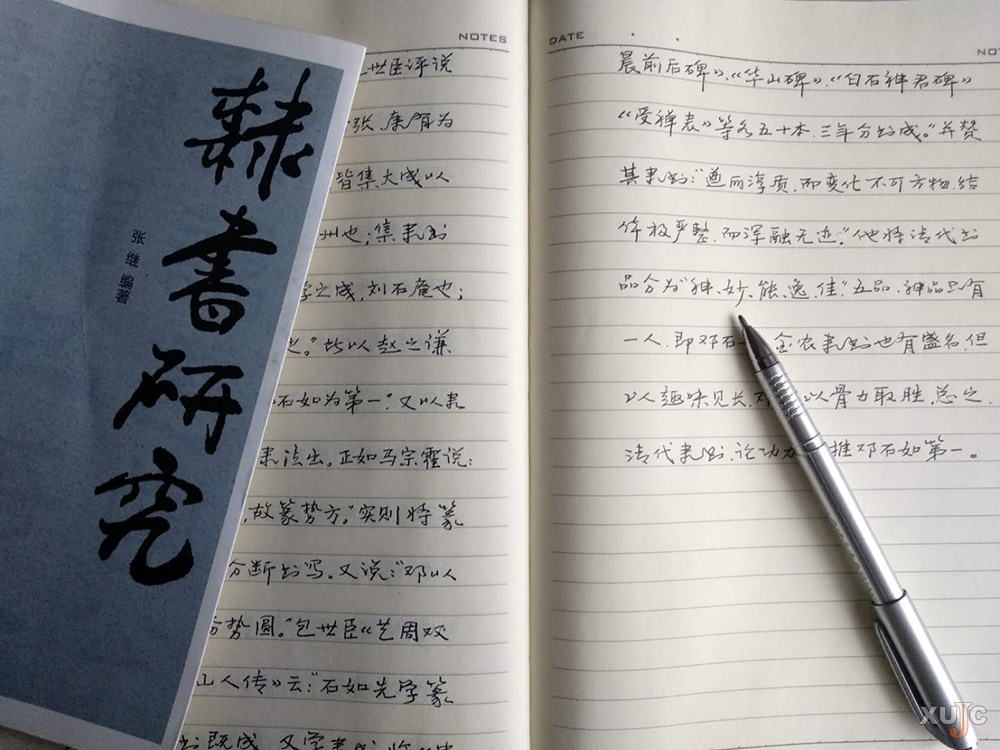 隶书研究
张继 编著
NOTES
世臣评说
张、康有为
皆集大成以
州也；集隶书
学之成，刘石庵也；
也。”故以赵之谦
石如为第一”。又以隶
隶法出。正如马宗霍说：
，故篆势方。”实则将篆
分断书写。又说：“邓以
势圆。”包世臣《艺周双
山人传》云：“石如先学篆
书既成，又学隶书，
DATE
NOT
晨前后碑》、《华山碑》、《白石神君碑》
《受禅表》等各五十本，三年分书成。”并赞
其隶书：“遒丽淳质，而变化不可方物，结
体极严整，而浑融无迹。”他将清代书
品分为“神、妙、能、逸、佳”五品，神品只有
一人，即邓石 金农隶书也有盛名，但
以人趣味见长，邓 以骨力取胜，总之，
清代隶书，论功力 推邓石如第一。
XUJC